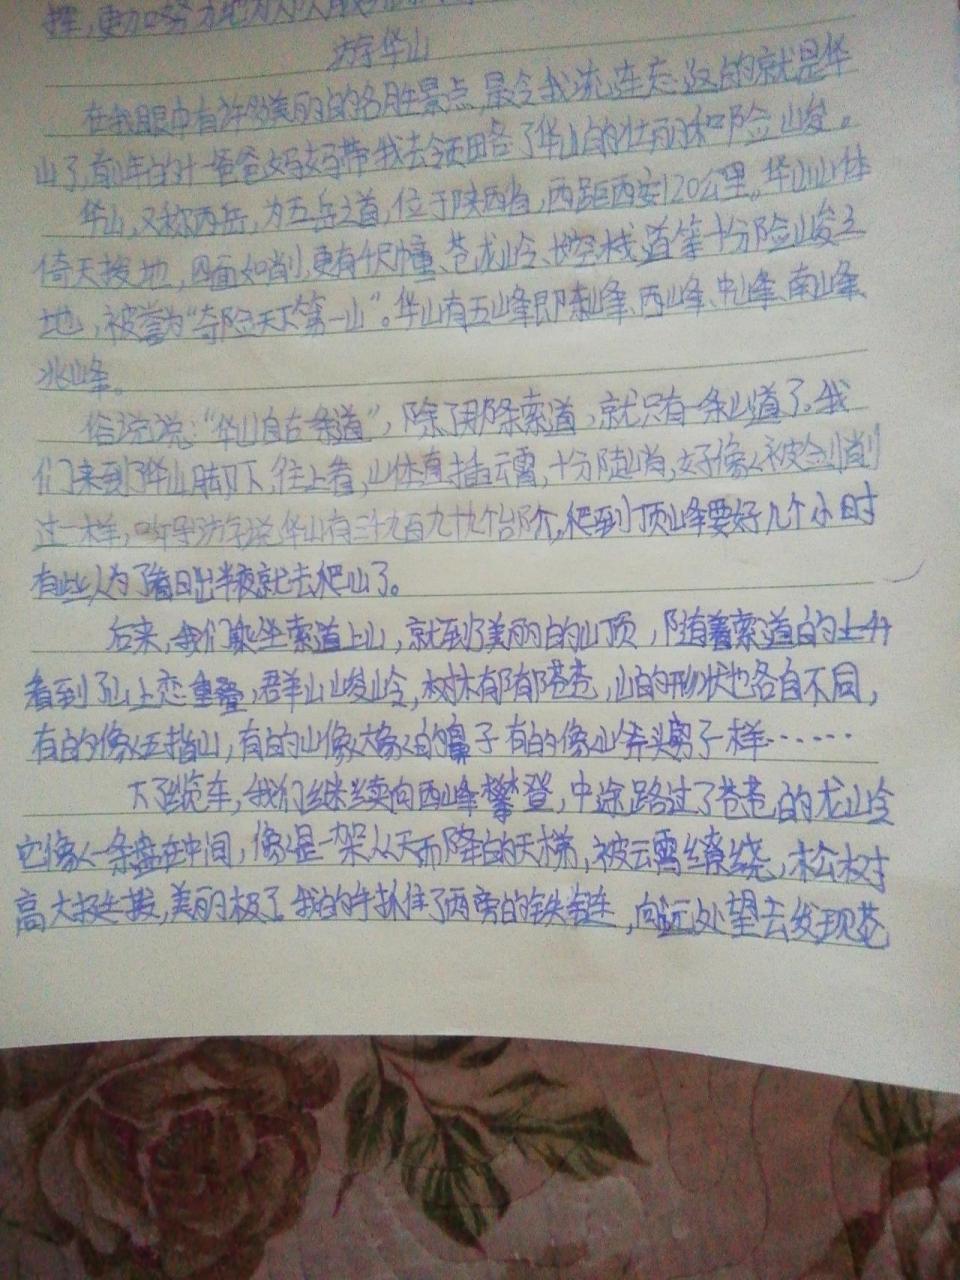 挥,更加努力地为人人
游华山
在我眼中有许多美丽的名胜景点,最令我流连忘返的就是华
山了,前年的时候爸爸妈妈带我去领略了华山的壮丽和险峻。
华山,又称西岳,为五岳之首,位于陕西省,西距西安120公里。华山山体
倚天拔地,四面如削,更有千尺幢、苍龙岭、长空栈道等十分险峻之
地,被誉为“奇险天下第一山”。华山有五峰即东峰、西峰、中峰、南峰、
北峰。
俗说说:“华山自古一条道”,除了那条索道,就只有一条山道了。我
们来到了华山脚下,往上看,山体直插云霄,十分陡峭,好像被剑削
过一样,听导游说华山有三千九百九十九个台阶,爬到顶峰要好几个小时
有些人为了看日出半夜就去爬山了。
后来,我们乘坐索道上山,就到了美丽的山顶,随着索道的上升
看到了山上峦重叠,群山峻岭,树木郁郁苍苍,山的形状也各自不同,
有的像五指山,有的山像大象的鼻子有的像山斧头劈了一样……
下了缆车,我们继续向西峰攀登,中途路过了苍苍的龙岭
它像一条盘在中间,像是一架从天而降的天梯,被云雾缭绕,松树
高大挺拔,美丽极了。我的手抓住了两旁的铁链,向远处望去发现苍